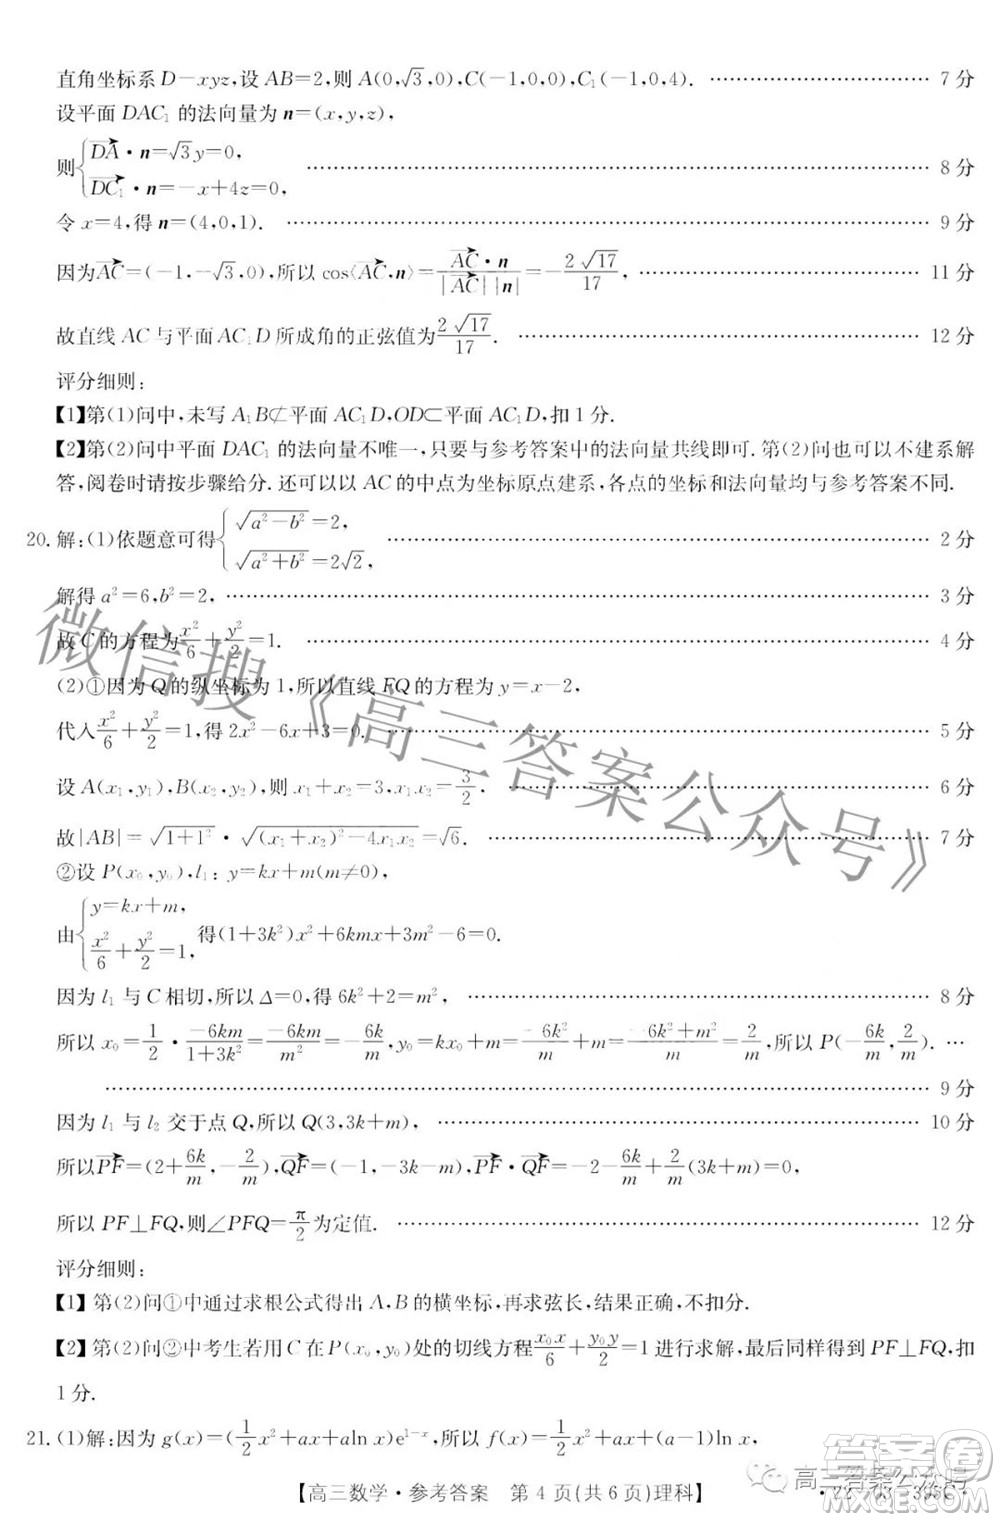 直角坐标系 D－xyz,设 AB=2,则 A(0,√3,0),C(-1,0,0),C₁(-1,0,4). ⋯⋯ 7 分
设平面 DAC₁ 的法向量为 n=(x,y,z),
则{DA→·n=√3y=0, DC₁→·n=-x+4z=0, ⋯⋯ 8 分
令 x=4,得 n=(4,0,1). ⋯⋯ 9 分
因为AC→=(-1,-√3,0),所以 cos⟨AC→,n⟩=AC→·n/|AC→||n|=-2√17/17, ⋯⋯ 11 分
故直线 AC 与平面 AC₁D 所成角的正弦值为2√17/17. ⋯⋯ 12 分
评分细则:
【1】第(1)问中,未写 A₁B⊄平面 AC₁D,OD⊂平面 AC₁D,扣 1 分.
【2】第(2)问中平面 DAC₁ 的法向量不唯一,只要与参考答案中的法向量共线即可.第(2)问也可以不建系解
答,阅卷时请按步骤给分.还可以以 AC 的中点为坐标原点建系,各点的坐标和法向量均与参考答案不同.
20.解:(1)依题意可得{√(a²-b²)=2, √(a²+b²)=2√2, ⋯⋯ 2 分
解得 a²=6,b²=2, ⋯⋯ 3 分
故 C 的方程为x²/6+y²/2=1. ⋯⋯ 4 分
(2)①因为 Q 的纵坐标为 1,所以直线 FQ 的方程为 y=x-2,
代入x²/6+y²/2=1,得 2x²-6x+3=0. ⋯⋯ 5 分
设 A(x₁,y₁),B(x₂,y₂),则 x₁+x₂=3,x₁x₂=3/2, ⋯⋯ 6 分
故|AB|=√(1+1²)·√((x₁+x₂)²-4x₁x₂)=√6. ⋯⋯ 7 分
②设 P(x₀,y₀),l₁:y=kx+m(m≠0),
由{y=kx+m, x²/6+y²/2=1, 得(1+3k²)x²+6kmx+3m²-6=0.
因为 l₁ 与 C 相切,所以 Δ=0,得 6k²+2=m², ⋯⋯ 8 分
所以 x₀=1/2·-6km/(1+3k²)=-6km/m²=-6k/m,y₀=kx₀+m=-6k²/m+m=(-6k²+m²)/m=2/m,所以 P(-6k/m,2/m). ⋯
⋯⋯ 9 分
因为 l₁ 与 l₂ 交于点 Q,所以 Q(3,3k+m), ⋯⋯ 10 分
所以PF→=(2+6k/m,-2/m),QF→=(-1,-3k-m),PF→·QF→=-2-6k/m+2/m(3k+m)=0,
所以 PF⊥FQ,则∠PFQ=π/2为定值. ⋯⋯ 12 分
评分细则:
【1】第(2)问①中通过求根公式得出 A,B 的横坐标,再求弦长,结果正确,不扣分.
【2】第(2)问②中考生若用 C 在 P(x₀,y₀)处的切线方程x₀x/6+y₀y/2=1进行求解,最后同样得到 PF⊥FQ,扣
1 分.
21.(1)解:因为 g(x)=(1/2x²+ax+aln x)e¹⁻ˣ,所以 f(x)=1/2x²+ax+(a-1)ln x,
【高三数学·参考答案 第 4 页(共 6 页)理科】
微信搜《高三答案公众号》
高三答案公众号
答案圈